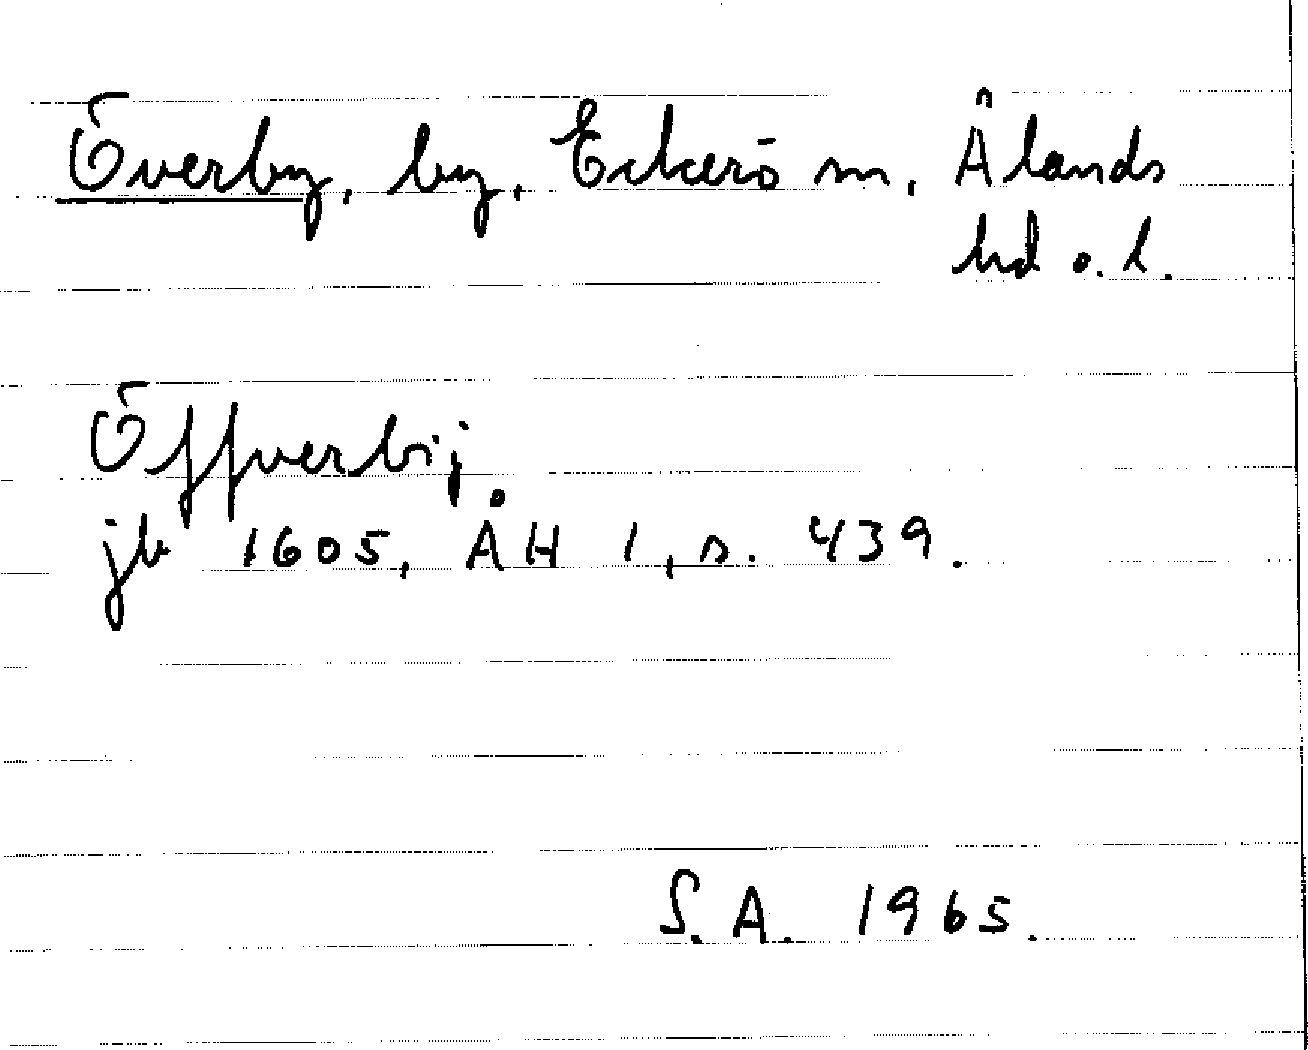 Överby, by, Eckerö sn, Ålands
hd o. l.
Öffverbij
jb 1605, ÅH 1, s. 439.
S. A. 1965.